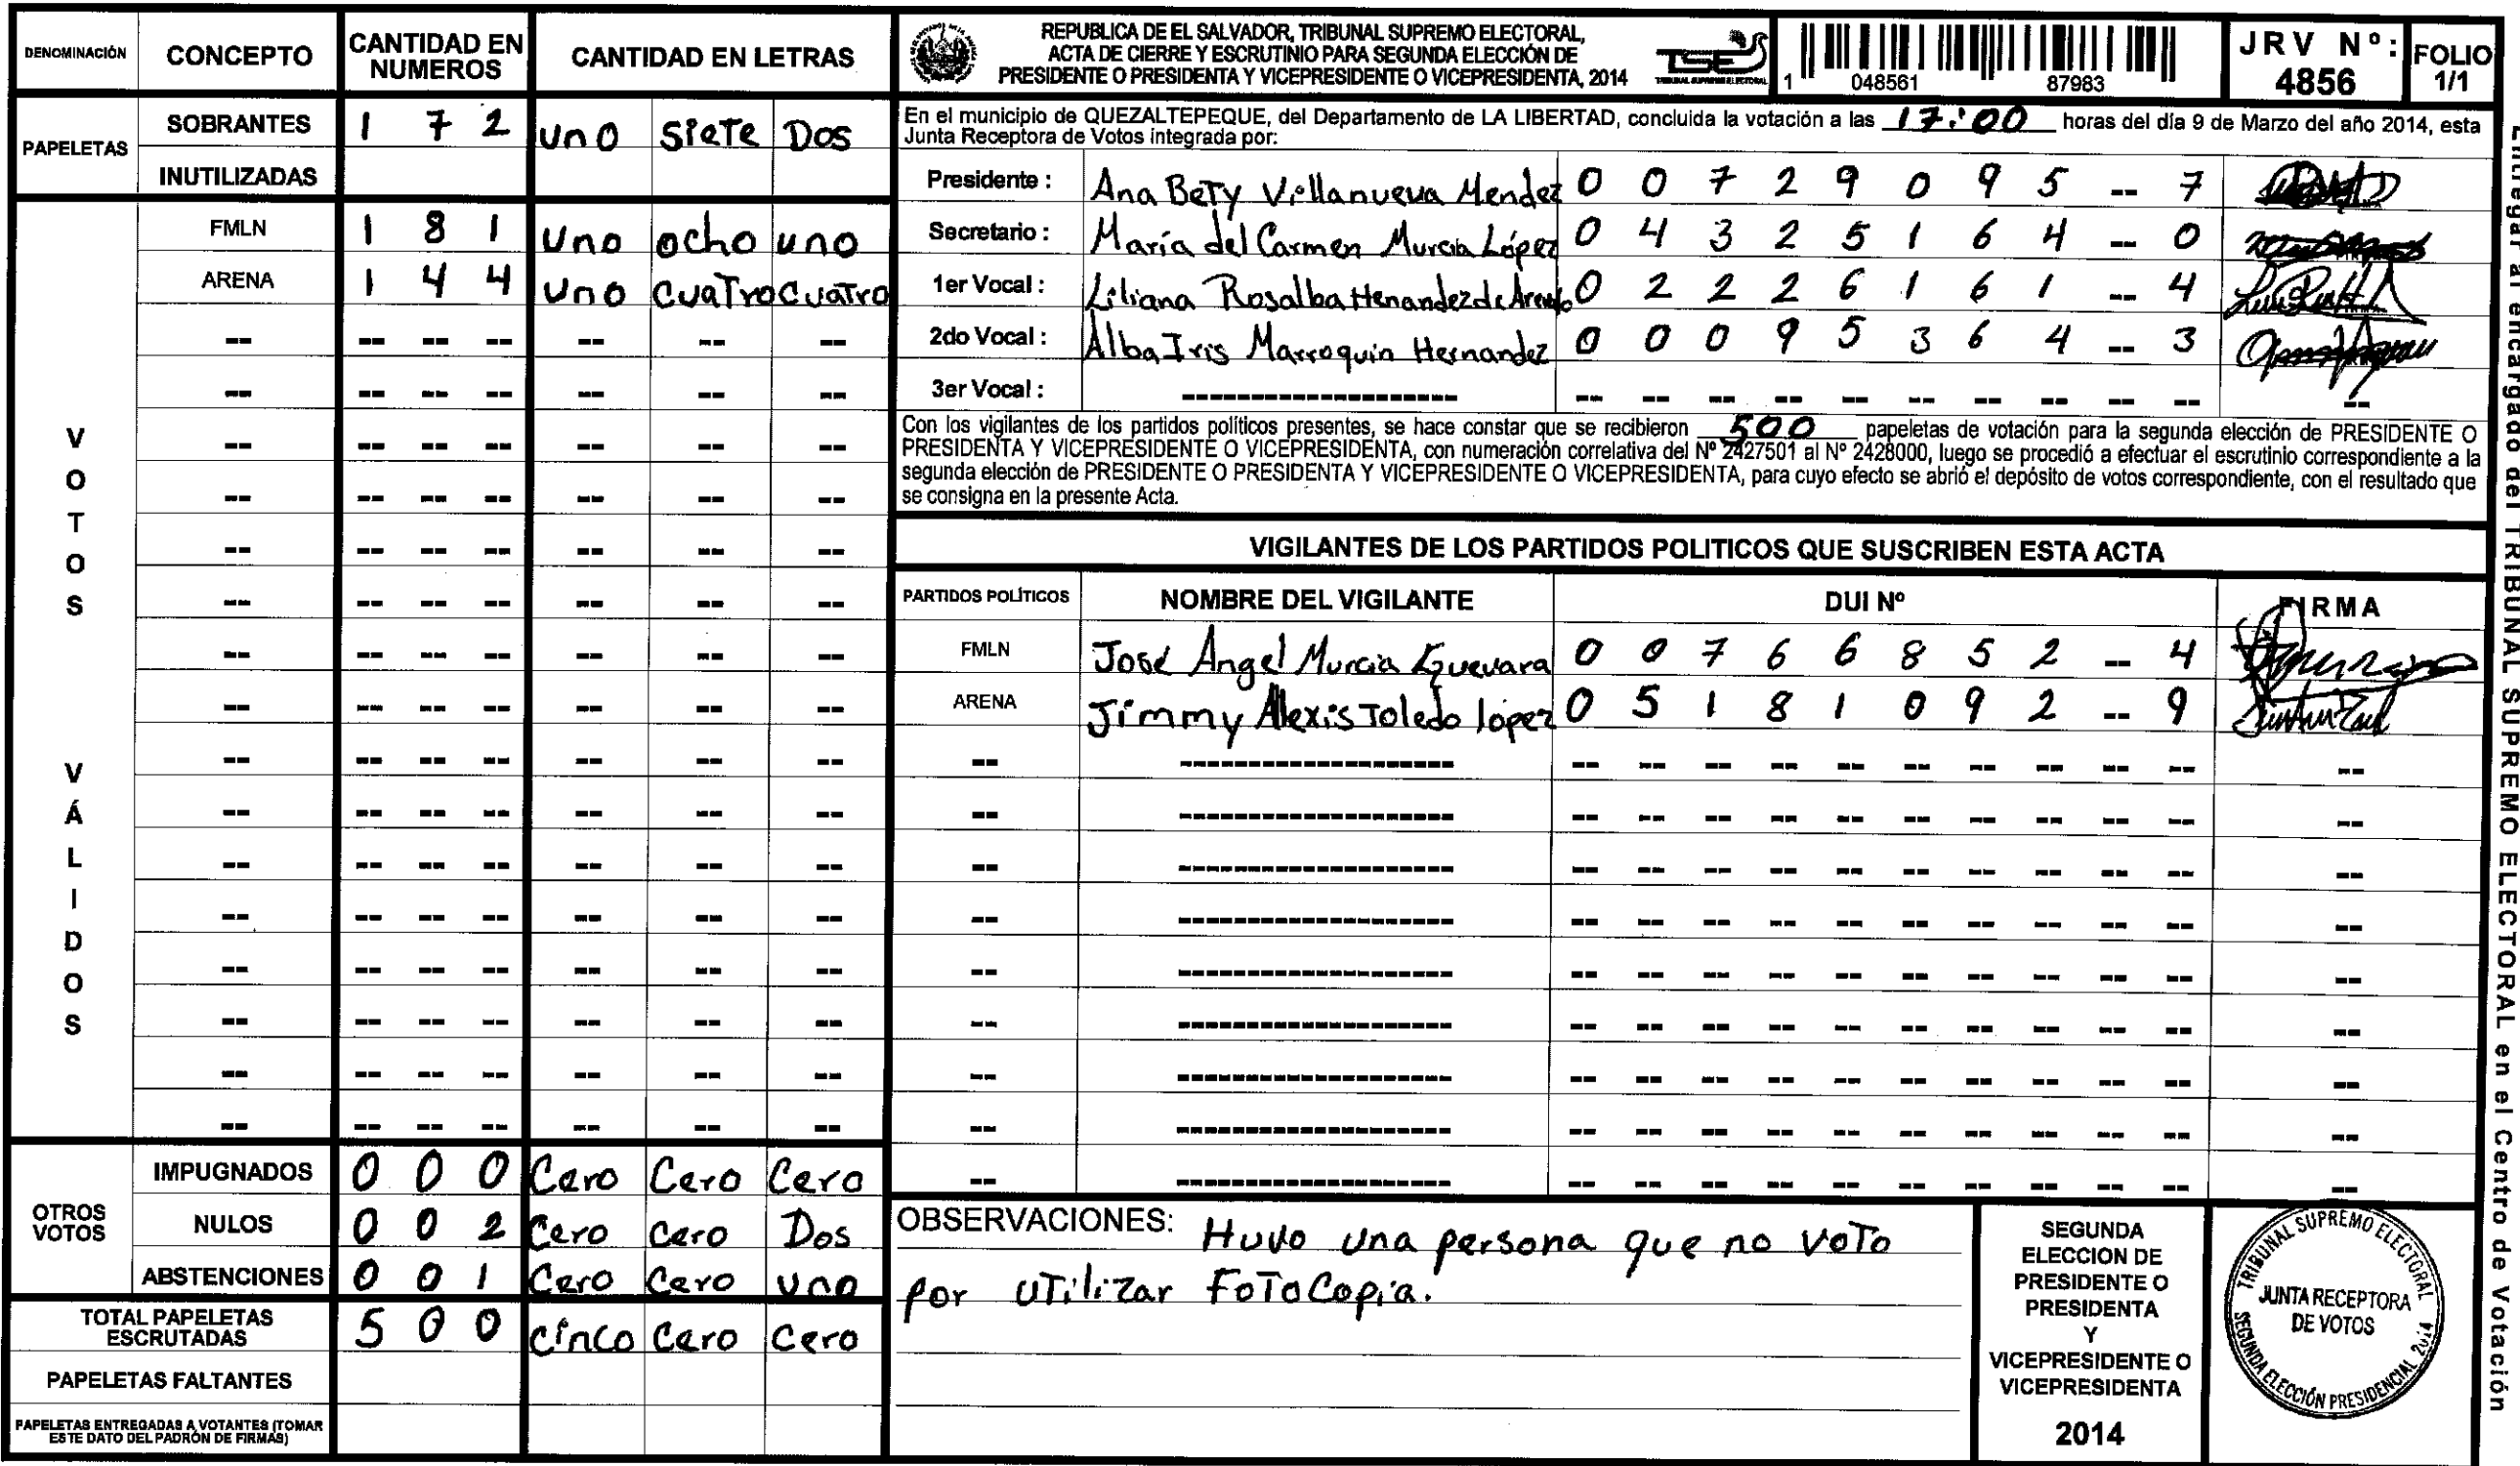 DENOMINACIÓN CONCEPTO CANTIDAD EN NUMEROS CANTIDAD EN LETRAS
PAPELETAS SOBRANTES 1 7 2 uno siete Dos
INUTILIZADAS
VOTOS VÁLIDOS
FMLN 1 8 1 uno ocho uno
ARENA 1 4 4 uno cuatro cuatro
OTROS VOTOS
IMPUGNADOS 0 0 0 Cero Cero Cero
NULOS 0 0 2 Cero Cero Dos
ABSTENCIONES 0 0 1 Cero Cero uno
TOTAL PAPELETAS ESCRUTADAS 5 0 0 cinco Cero Cero
PAPELETAS FALTANTES
PAPELETAS ENTREGADAS A VOTANTES (TOMAR
ESTE DATO DEL PADRÓN DE FIRMAS)
REPUBLICA DE EL SALVADOR, TRIBUNAL SUPREMO ELECTORAL,
ACTA DE CIERRE Y ESCRUTINIO PARA SEGUNDA ELECCIÓN DE
PRESIDENTE O PRESIDENTA Y VICEPRESIDENTE O VICEPRESIDENTA, 2014
TSE
TRIBUNAL SUPREMO ELECTORAL
1 048561 87983
JRV Nº: 4856
FOLIO 1/1
En el municipio de QUEZALTEPEQUE, del Departamento de LA LIBERTAD, concluida la votación a las 17:00 horas del día 9 de Marzo del año 2014, esta
Junta Receptora de Votos integrada por:
Presidente : Ana Bety Villanueva Mendez 0 0 7 2 9 0 9 5 -- 7
Secretario : María del Carmen Murcia López 0 4 3 2 5 1 6 4 -- 0
1er Vocal : Liliana Rosalba Henandez de 0 2 2 2 6 1 6 1 -- 4
2do Vocal : Alba Iris Marroquin Hernandez 0 0 0 9 5 3 6 4 -- 3
3er Vocal :
Con los vigilantes de los partidos políticos presentes, se hace constar que se recibieron 500 papeletas de votación para la segunda elección de PRESIDENTE O
PRESIDENTA Y VICEPRESIDENTE O VICEPRESIDENTA, con numeración correlativa del Nº 2427501 al Nº 2428000, luego se procedió a efectuar el escrutinio correspondiente a la
segunda elección de PRESIDENTE O PRESIDENTA Y VICEPRESIDENTE O VICEPRESIDENTA, para cuyo efecto se abrió el depósito de votos correspondiente, con el resultado que
se consigna en la presente Acta.
VIGILANTES DE LOS PARTIDOS POLITICOS QUE SUSCRIBEN ESTA ACTA
PARTIDOS POLÍTICOS NOMBRE DEL VIGILANTE DUI Nº FIRMA
FMLN José Angel Murcia Guevara 0 0 7 6 6 8 5 2 -- 4
ARENA Jimmy Alexis Toledo lopez 0 5 1 8 1 0 9 2 -- 9
OBSERVACIONES: Huvo una persona que no voto
por utilizar Fotocopia.
SEGUNDA
ELECCION DE
PRESIDENTE O
PRESIDENTA
Y
VICEPRESIDENTE O
VICEPRESIDENTA
2014
TRIBUNAL SUPREMO ELECTORAL
JUNTA RECEPTORA
DE VOTOS
SEGUNDA ELECCIÓN PRESIDENCIAL 2014
Entregar al encargado del TRIBUNAL SUPREMO ELECTORAL en el Centro de Votación